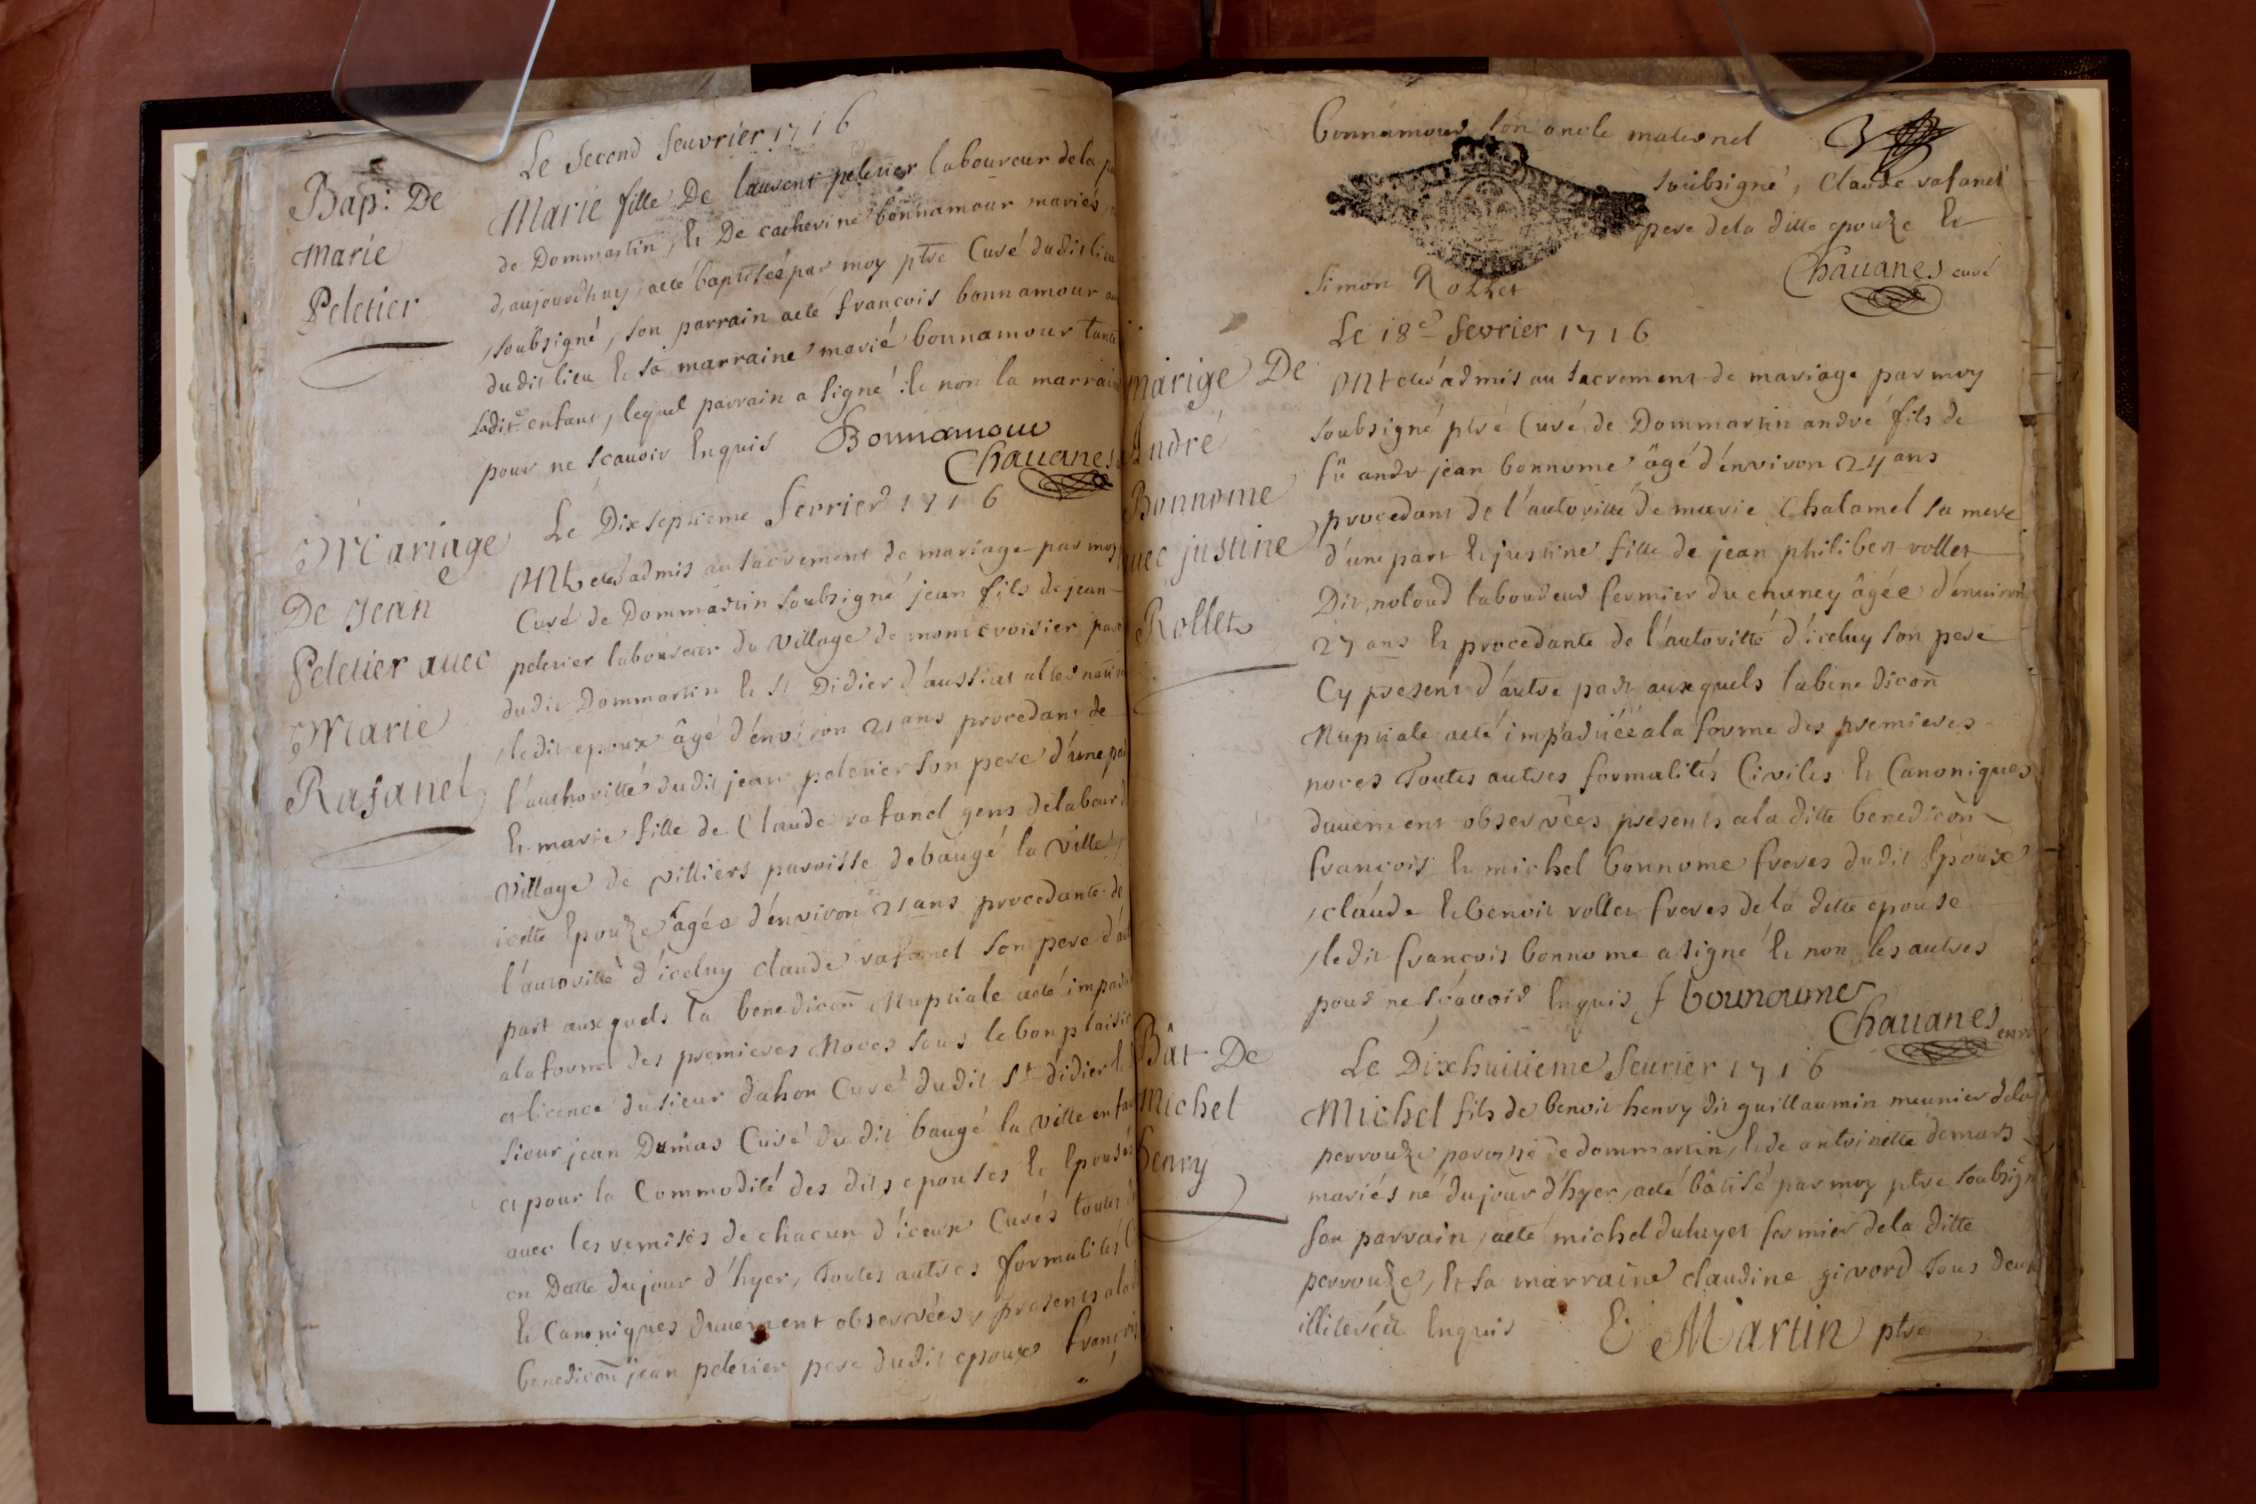 Bap: De
Marie
Peletier
Le second feuvrier 1716
Marie fille De laurent peletier laboureur dela
de Dommartin, & De catherine bonnamour mariés
d'aujourdhuy, aeté baptisée par moy ptre Curé dudit lieu
soubsigné, son parrain aeté françois bonnamour
dudit lieu & sa marraine marie bonnamour tante
ladite enfant, lequel parrain a signé & non la marraine
pour ne scauoir Enquis Bonnamour
Chauanes
Mariage
De Jean
Peletier auec
Marie
Rafanel
Le Dixseptieme fevrier 1716
Ont etés admis au sacrement de mariage par moy
Curé de Dommartin soubsigné jean fils de jean
peletier laboureur du village de montcroisier
dudit Dommartin & St Didier d'aussiat
ledit epoux âgé d'environ 21 ans procedant de
l'authorité dudit jean peletier son pere d'une
& marie fille de Claude rafanel gens delabeur
village de villiers paroisse debaugé la ville
icelle Epouze âgée d'environ 21 ans procedante de
l'autorité d'iceluy claude rafanel son pere
part auxquels la benedicon Nuptiale aeté
alaforme des premieres Noces sous lebon plaisir
et licence dusieur dahon Curé dudit St didier &
sieur jean Damas Curé dudit baugé la ville
et pour la Commodité des dits epouses &
auec les remises de chacun d'iceux Curés toutes
en Datte dujour d'hyer, Toutes autres formalités
& Canoniques duuement observées, presents
benedicon jean peletier pere dudit epoux françois
bonnamour son oncle maternel
soubsigné, Claude rafanel
pere dela ditte epouze &
Simon Rollet
Chauanes curé
marige De
André
Bonnome
auec justine
Rollet
Le 18e fevrier 1716
Ont etés admis au sacrement de mariage par moy
soubsigné ptre Curé de Dommartin andré fils de
fû andr jean bonnome âgé d'environ 24 ans
procedant de l'autorité de marie Chalamel sa mere
d'une part & justine fille de jean philibert rollet
Dit laboureur fermier du âgée d'enuiron
27 ans & procedante de l'autorité d'iceluy son pere
Cy present d'autre part auxquels labenedicon
Nuptiale aeté impartiée ala forme des premieres
noces Toutes autres formalités Civiles & Canoniques
duuement observées presents ala ditte benedicon
françois & michel bonnome freres dudit Epoux
claude & benoit rollet freres dela ditte epouse
ledit françois bonnome a signé & non les autres
pour ne sçauoir Enquis f bounoume
Chauanes curé
Bât De
Michel
henry
Le Dixhuitieme feurier 1716
Michel fils de benoit henry dit guillaumin meunier dela
perrouze paroisse de dommartin, & de antoinette
mariés né dujour d'hyer, aeté bâtisé par moy ptre soubsigné
son parrain aeté michel duluyet fermier dela ditte
perrouze, & sa marraine claudine givord tous deux
Enquis E Martin ptre